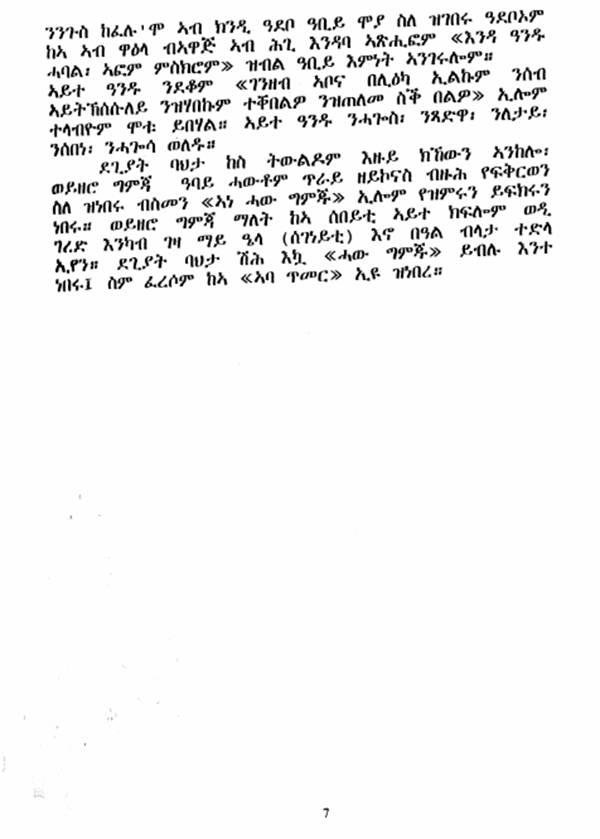 ንንጉስ ከፈሉ'ሞ ኣብ ክንዲ ዓደቦ ዓቢይ ሞያ ስለ ዝገበሩ ዓደቦኦም
ከኣ ኣብ ዋዕላ ብኣዋጅ ኣብ ሕጊ እንዳባ ኣጽሒፎም «እንዳ ዓንዱ
ሓባል፡ ኣፎም ምስክሮም» ዝብል ዓቢይ እምነት ኣንገሩሎም።
ኣይተ ዓንዱ ንደቆም «ገንዘብ ኣቦና በሊዕካ ኢልኩም ንሰብ
ኣይትኸሰሱለይ ንዝሃበኩም ተቐበልዎ ንዝጠለመ ስቕ በልዎ» ኢሎም
ተላብዮም ሞቱ ይበሃል። ኣይተ ዓንዱ ንሓጐስ፡ ንጻድዋ፡ ንለታይ፡
ንሰበነ፡ ንሓጐሳ ወለዱ።
ደጊያት ባህታ ከስ ትውልዶም እዙይ ክኸውን ኣንከሎ፡
ወይዘሮ ግምጃ ዓባይ ሓውቶም ጥራይ ዘይኮናስ ብዙሕ የፍቅርወን
ስለ ዝነበሩ ብስመን «ኣነ ሓው ግምጁ» ኢሎም የዝምሩን ይፍክሩን
ነበሩ። ወይዘሮ ግምጃ ማለት ከኣ ሰበይቲ ኣይተ ክፍሎም ወዲ
ገረድ እንካብ ገዛ ማይ ዔላ (ሰገነይቲ) እኖ በዓል ብላታ ተድላ
ኢየን። ደጊያት ባህታ ሽሕ እኳ «ሓው ግምጁ» ይብሉ እንተ
ነበሩ፤ ስም ፈረሶም ከኣ «ኣባ ጥመር» ኢዩ ዝነበረ።
7